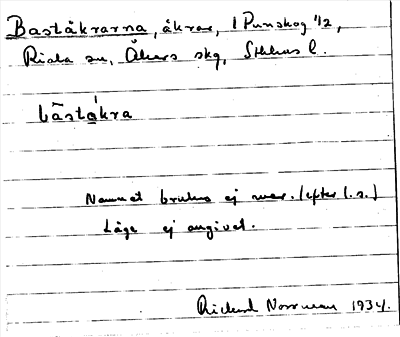 Baståkrarna, åkrar, 1 Punskog 1/2,
Riala sn, Åkers skg, Sthlms l.
bāståkra
Namnet brukas ej mer. (efter l.s.)
Läge ej angivet.
Richard Norrman 1934.